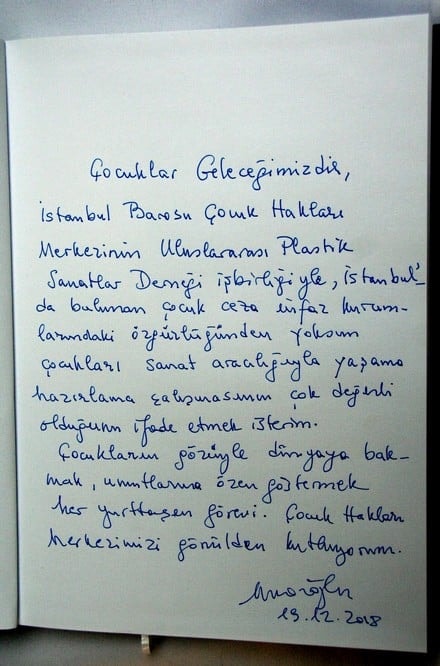 Çocuklar Geleceğimizdir,
İstanbul Barosu Çocuk Hakları
Merkezinin Uluslararası Plastik
Sanatlar Derneği işbirliğiyle, İstanbul'-
da bulunan çocuk ceza infaz kurum-
larındaki özgürlüğünden yoksun
çocukları sanat aracılığıyla yaşama
hazırlama çalışmasının çok değerli
olduğunu ifade etmek isterim.
Çocukların gözüyle dünyaya bak-
mak, umutlarına özen göstermek
her yurttaşın görevi. Çocuk Hakları
Merkezimizi gönülden kutluyorum.
19.12.2018